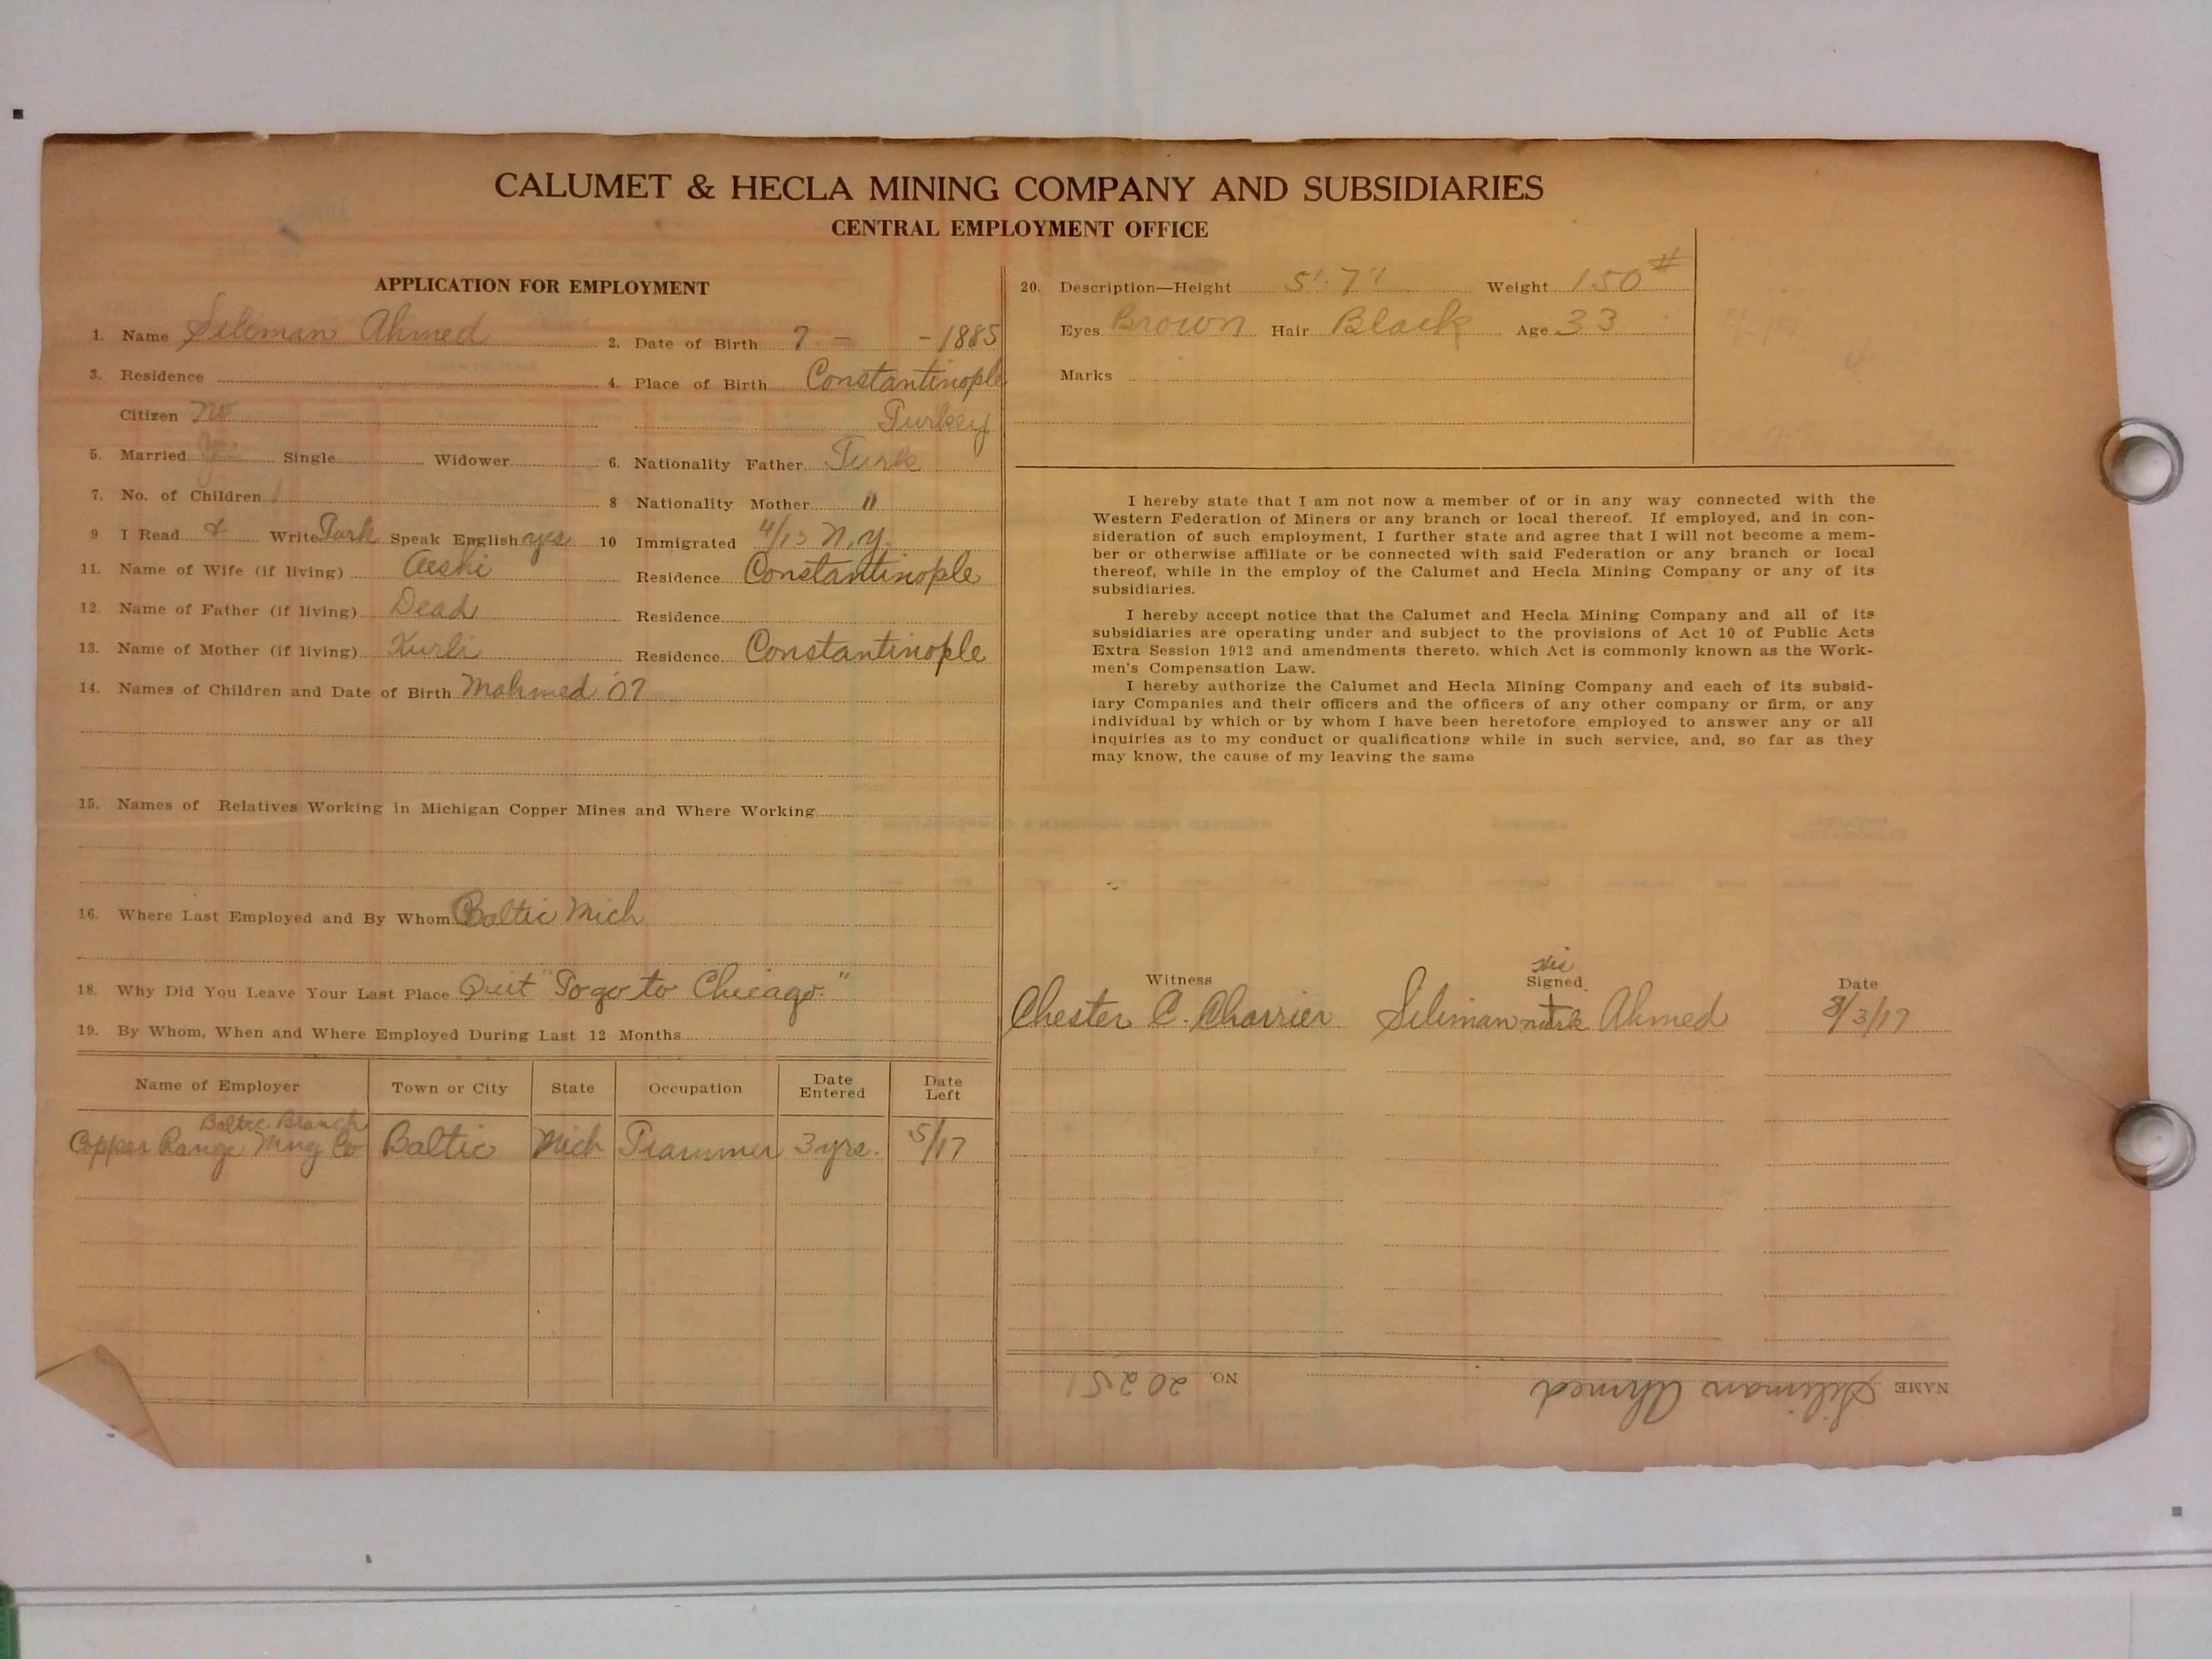 CALUMET & HECLA MINING COMPANY AND SUBSIDIARIES
CENTRAL EMPLOYMENT OFFICE
APPLICATION FOR EMPLOYMENT
1. Name Seliman Ahmed 2. Date of Birth 7 - - 1885
3. Residence 4. Place of Birth Constantinople
Citizen No Turkey
5. Married Yes Single Widower 6. Nationality Father Turk
7. No. of Children 1 8 Nationality Mother "
9 I Read & Write Turk Speak English yes 10 Immigrated 4/13 N.Y.
11. Name of Wife (if living) Aeshi Residence Constantinople
12. Name of Father (if living) Dead Residence
13. Name of Mother (if living) Kurli Residence Constantinople
14. Names of Children and Date of Birth Mahmed '07
15. Names of Relatives Working in Michigan Copper Mines and Where Working
16. Where Last Employed and By Whom Baltic Mich
18. Why Did You Leave Your Last Place Quit "To go to Chicago."
19. By Whom, When and Where Employed During Last 12 Months
Name of Employer Town or City State Occupation Date Entered Date Left
Baltic Branch
Copper Range Mng Co Baltic Mich Trammer 3 yrs. 5/17
20. Description—Height 5' 7" Weight 150#
Eyes Brown Hair Black Age 33
Marks
I hereby state that I am not now a member of or in any way connected with the
Western Federation of Miners or any branch or local thereof. If employed, and in con-
sideration of such employment, I further state and agree that I will not become a mem-
ber or otherwise affiliate or be connected with said Federation or any branch or local
thereof, while in the employ of the Calumet and Hecla Mining Company or any of its
subsidiaries.
I hereby accept notice that the Calumet and Hecla Mining Company and all of its
subsidiaries are operating under and subject to the provisions of Act 10 of Public Acts
Extra Session 1912 and amendments thereto, which Act is commonly known as the Work-
men's Compensation Law.
I hereby authorize the Calumet and Hecla Mining Company and each of its subsid-
iary Companies and their officers and the officers of any other company or firm, or any
individual by which or by whom I have been heretofore employed to answer any or all
inquiries as to my conduct or qualifications while in such service, and, so far as they
may know, the cause of my leaving the same
his
Witness Signed Date
Chester C. Charrier Seliman mark Ahmed 8/3/17
NAME Seliman Ahmed NO. 20251